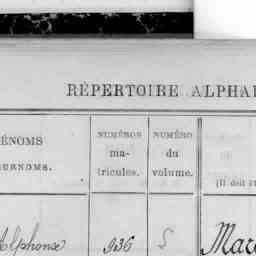 RÉPERTOIRE ALPHA
ÉNOMS
SURNOMS.
NUMÉROS
ma-
tricules.
NUMÉRO
du
volume.
(Il doit
Alphonse 936 5 Marc